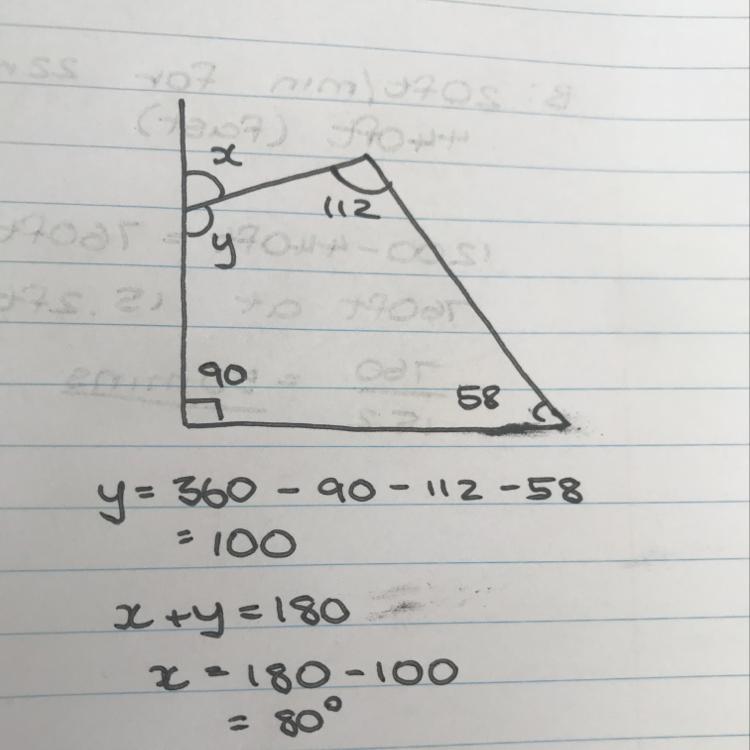 x
112
y
90
58
y = 360 - 90 - 112 - 58
= 100
x + y = 180
x = 180 - 100
= 80°